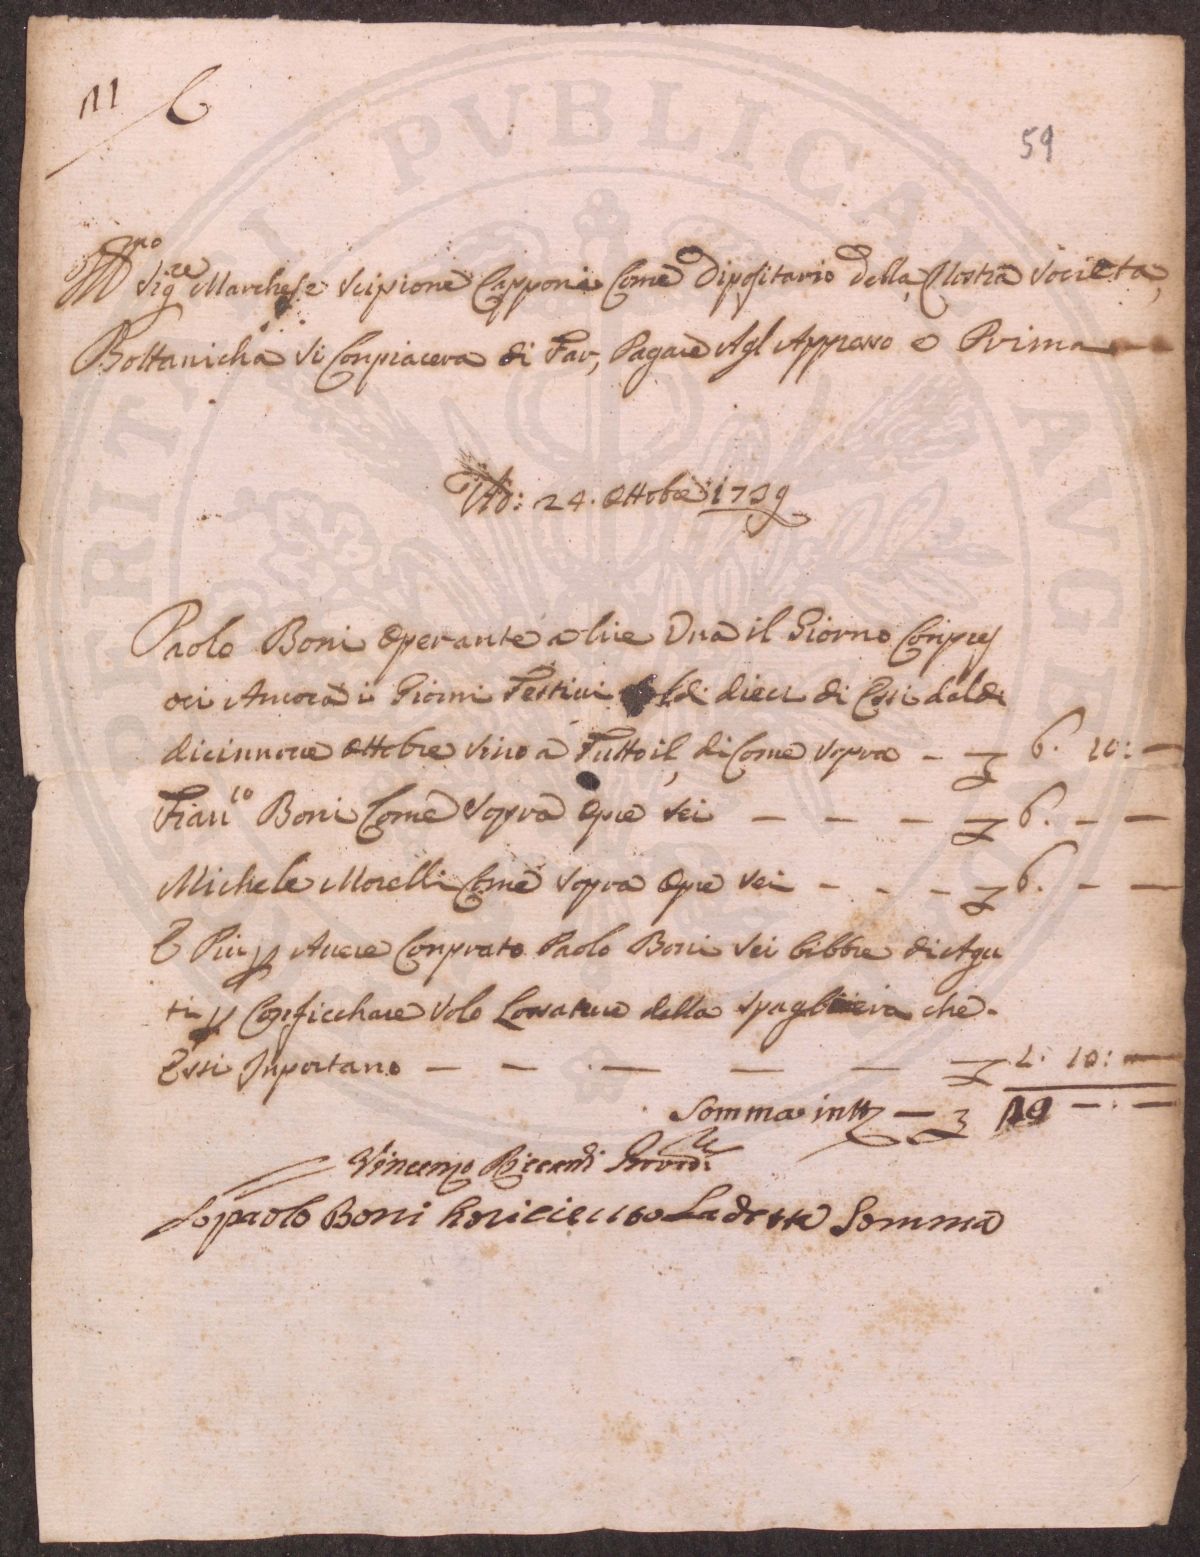 11
59
Ill.mo Sig.re Marchese Scipione Capponi Come Dipositario della Nostra Societa,
Bottanicha Si Conpiacera di Far, Pagare Agl Appresso e Prima
Ad: 24. Ottobre 1739
Paolo Boni Operante a lire Una il Giorno Conpres
oci Ancora i Giorni Festivi soldi dieci di Essi dal di
dicinnove Ottobre Sino a Tutto il, di Come Sopra — 6. 10: —
Fran.co Boni Come Sopra Opre Sei — — — 6. — —
Michele Morelli Come Sopra Opre Sei — — — 6. — —
E Piu p Avere Conprato Paolo Boni Sei Libbre di Agu
ti p Conficchare Solo Lossature della Spagliera che
Essi Inportano — — — — — L. 10: —
Somma in tt — 19 — . —
Vincenzo Riccardi Provv.re
Io paolo Boni ho riceuto La detta Somma
PERITATI PVBLICAE AVG